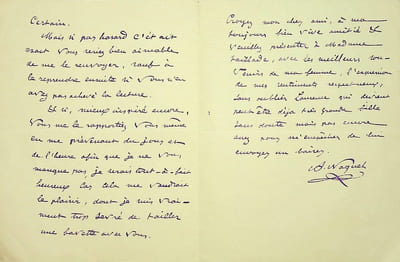 Certain.
Mais si par hasard c'était
exact vous seriez bien aimable
de me le renvoyer, sauf à
le reprendre ensuite si vous n'en
avez pas achevé la lecture.
Et si, mieux inspiré encore,
vous me le rapportiez vous même
en me prévenant du jour et
de l'heure afin que je ne vous
manque pas je serais tout-à-fait
heureux car cela me vaudrait
le plaisir, dont je suis vrai-
ment trop sevré de tailler
une bavette avec vous.
Croyez mon cher ami, à ma
toujours bien vive amitié et
veuillez présenter à Madame
Tailhade, avec les meilleurs sou-
venirs de ma femme, l'expression
de mes sentiments respectueux,
sans oublier Laurence qui devient
peut-être déjà très grande fille
sans doute mais pas encore
assez pour m'empêcher de lui
envoyer un baiser.
A. Naquet